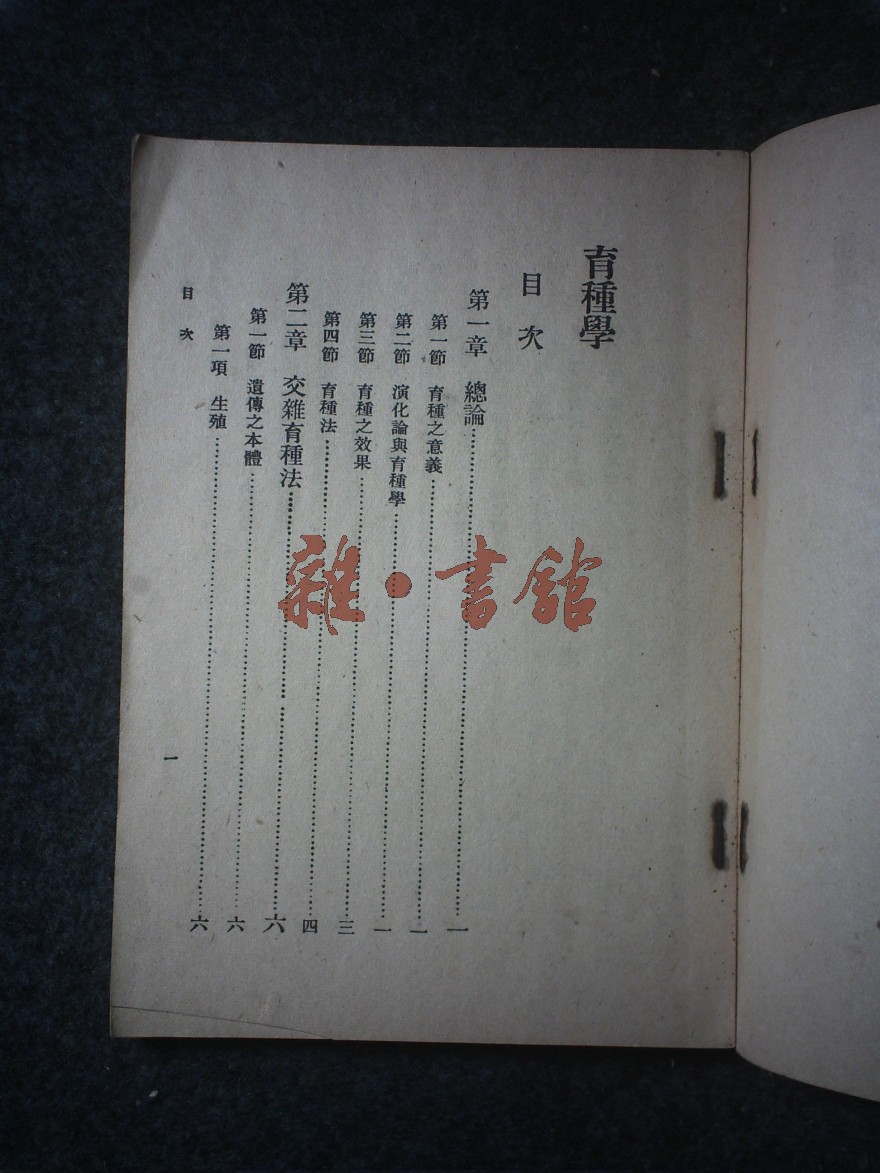 育種學
目次
第一章 總論……一
第一節 育種之意義……一
第二節 演化論與育種學……一
第三節 育種之效果……三
第四節 育種法……四
第二章 交雜育種法……六
第一節 遺傳之本體……六
第一項 生殖……六
目次
一
雜·書館